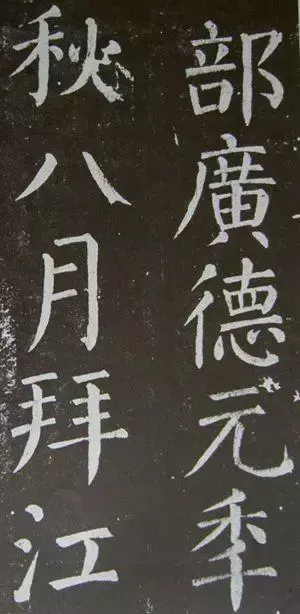 部廣德元年
秋八月拜江